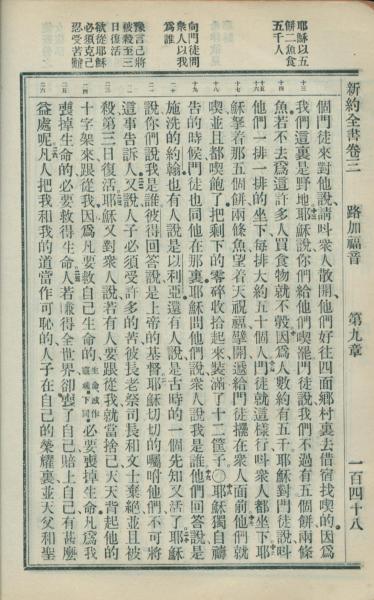 新約全書卷三 路加福音 第九章 一百四十八
耶穌以五
餅二魚食
五千人
向門徒問
衆人以我
爲誰
豫言己將
被殺至三
日復活
欲從耶穌
必須克己
忍受苦難
個門徒來對他說請呌衆人散開他們好往四面鄉村裏去借宿找喫的因爲
我們這裏是野地耶穌說你們給他們喫罷門徒說我們不過有五個餅兩條
魚若不去爲這許多人買食物就不彀因爲人數約有五千耶穌對門徒說呌
他們一排一排的坐下每排大約五十個人門徒就這樣行呌衆人都坐下耶
穌拏着那五個餅兩條魚望着天祝福擘開遞給門徒擺在衆人面前他們就
喫並且都喫飽了把剩下的零碎收拾起來裝滿了十二筐子○耶穌獨自禱
告的時候門徒也同他在那裏耶穌問他們說衆人說我是誰他們回答說是
施洗的約翰也有人說是以利亞還有人說是古時的一個先知又活了耶穌
說你們說我是誰彼得回答說是上帝的基督耶穌切切的囑咐他們不可將
這事告訴人又說人子必須受許多的苦被長老祭司長和文士棄絶並且被
殺第三日復活耶穌又對衆人說若有人要跟從我就當捨己天天背起他的
十字架來跟從我因爲凡要救自己生命的生命或作靈魂下同必要喪掉生命凡爲我
喪掉生命的必要救得生命人若賺得全世界卻喪了自己賠上自己有甚麽
益處呢凡人把我和我的道當作可恥的人子在自己的榮耀裏並天父和聖